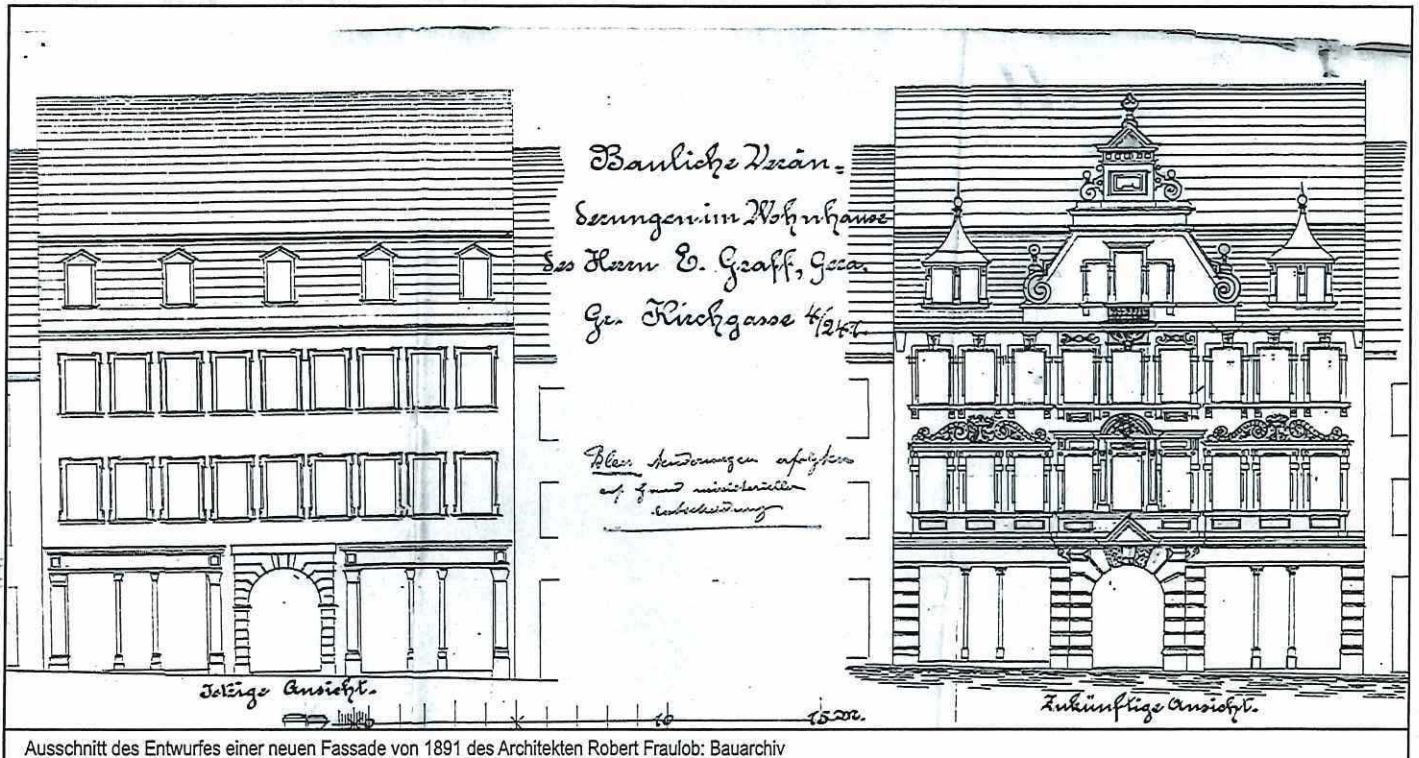 Bauliche Verän=
derungen im Wohnhause
des Herrn E. Graff, Gera.
Gr. Kirchgasse 4/247.
Änderungen erfolgten
auf Grund ministerieller
Entscheidung
Jetzige Ansicht.
0 10 15 m.
Zukünftige Ansicht.
Ausschnitt des Entwurfes einer neuen Fassade von 1891 des Architekten Robert Fraulob: Bauarchiv